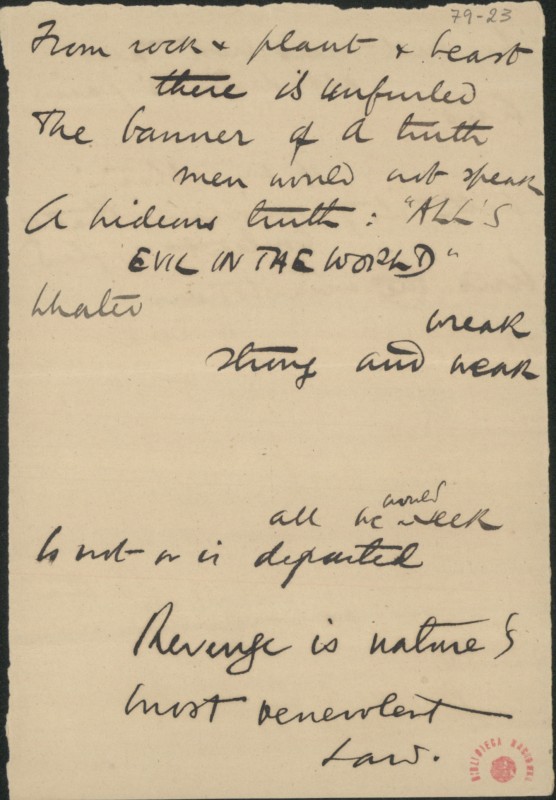 79-23
From rock & plant & beast
there is unfurled
The banner of a truth
men would not speak
A hideous truth: "ALL'S
EVIL IN THE WORLD"
What
wreak
strong and weak
would
all we seek
Is not or is departed
Revenge is nature's
most benevolent
Law.
BIBLIOTECA NACIONAL